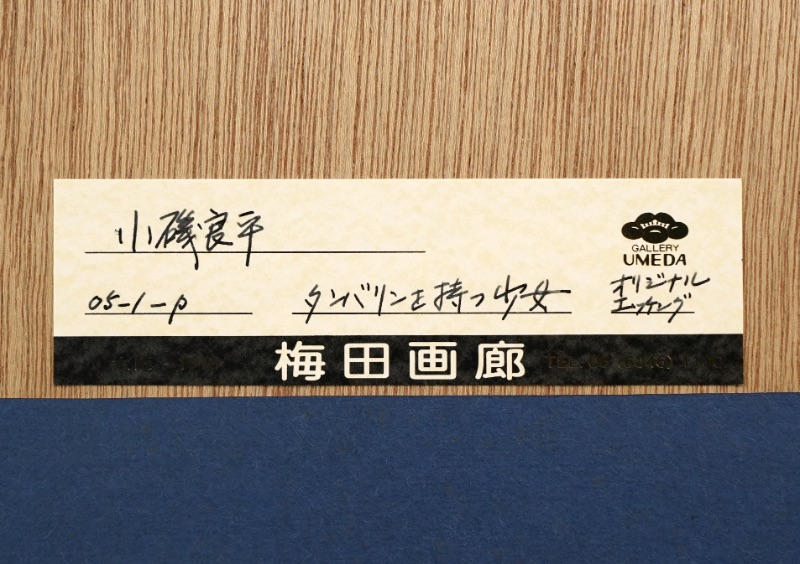 小磯良平
GALLERY
UMEDA
05-1-p
タンバリンを持つ少女
オリジナル
エッチング
梅田画廊